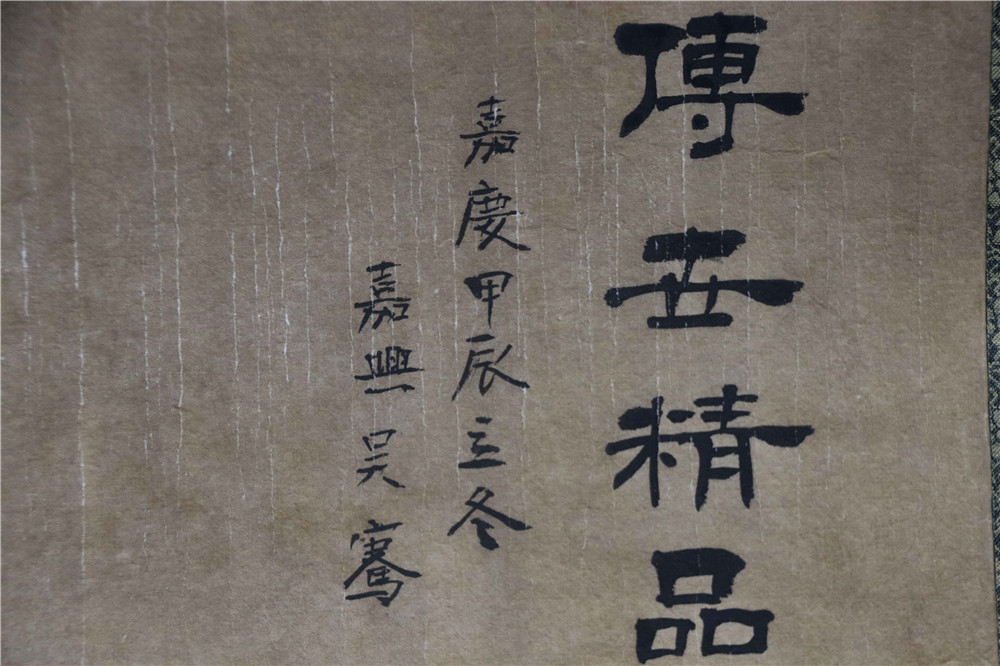 傳世精品
嘉慶甲辰立冬
嘉興吴騫